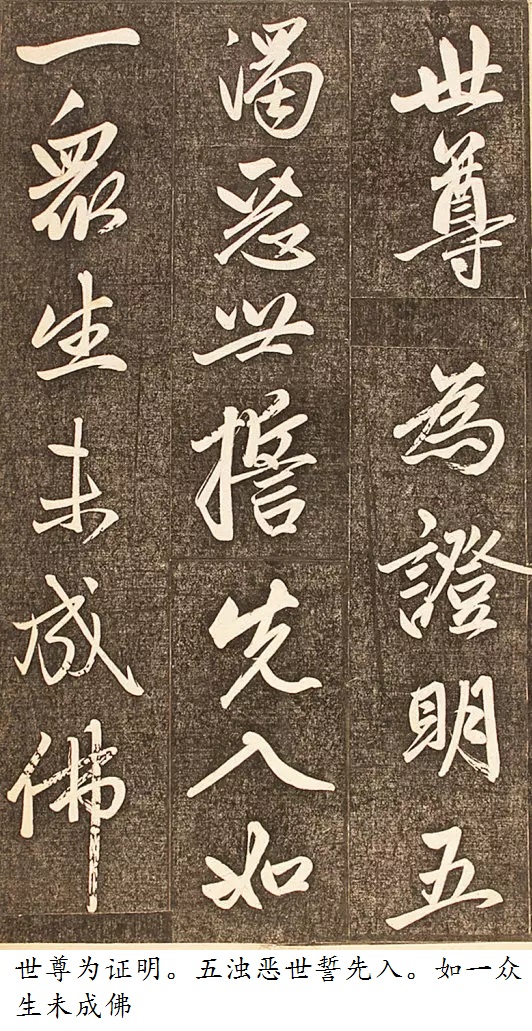 世尊為證明五
濁惡世誓先入如
一眾生未成佛
世尊为证明。五浊恶世誓先入。如一众
生未成佛